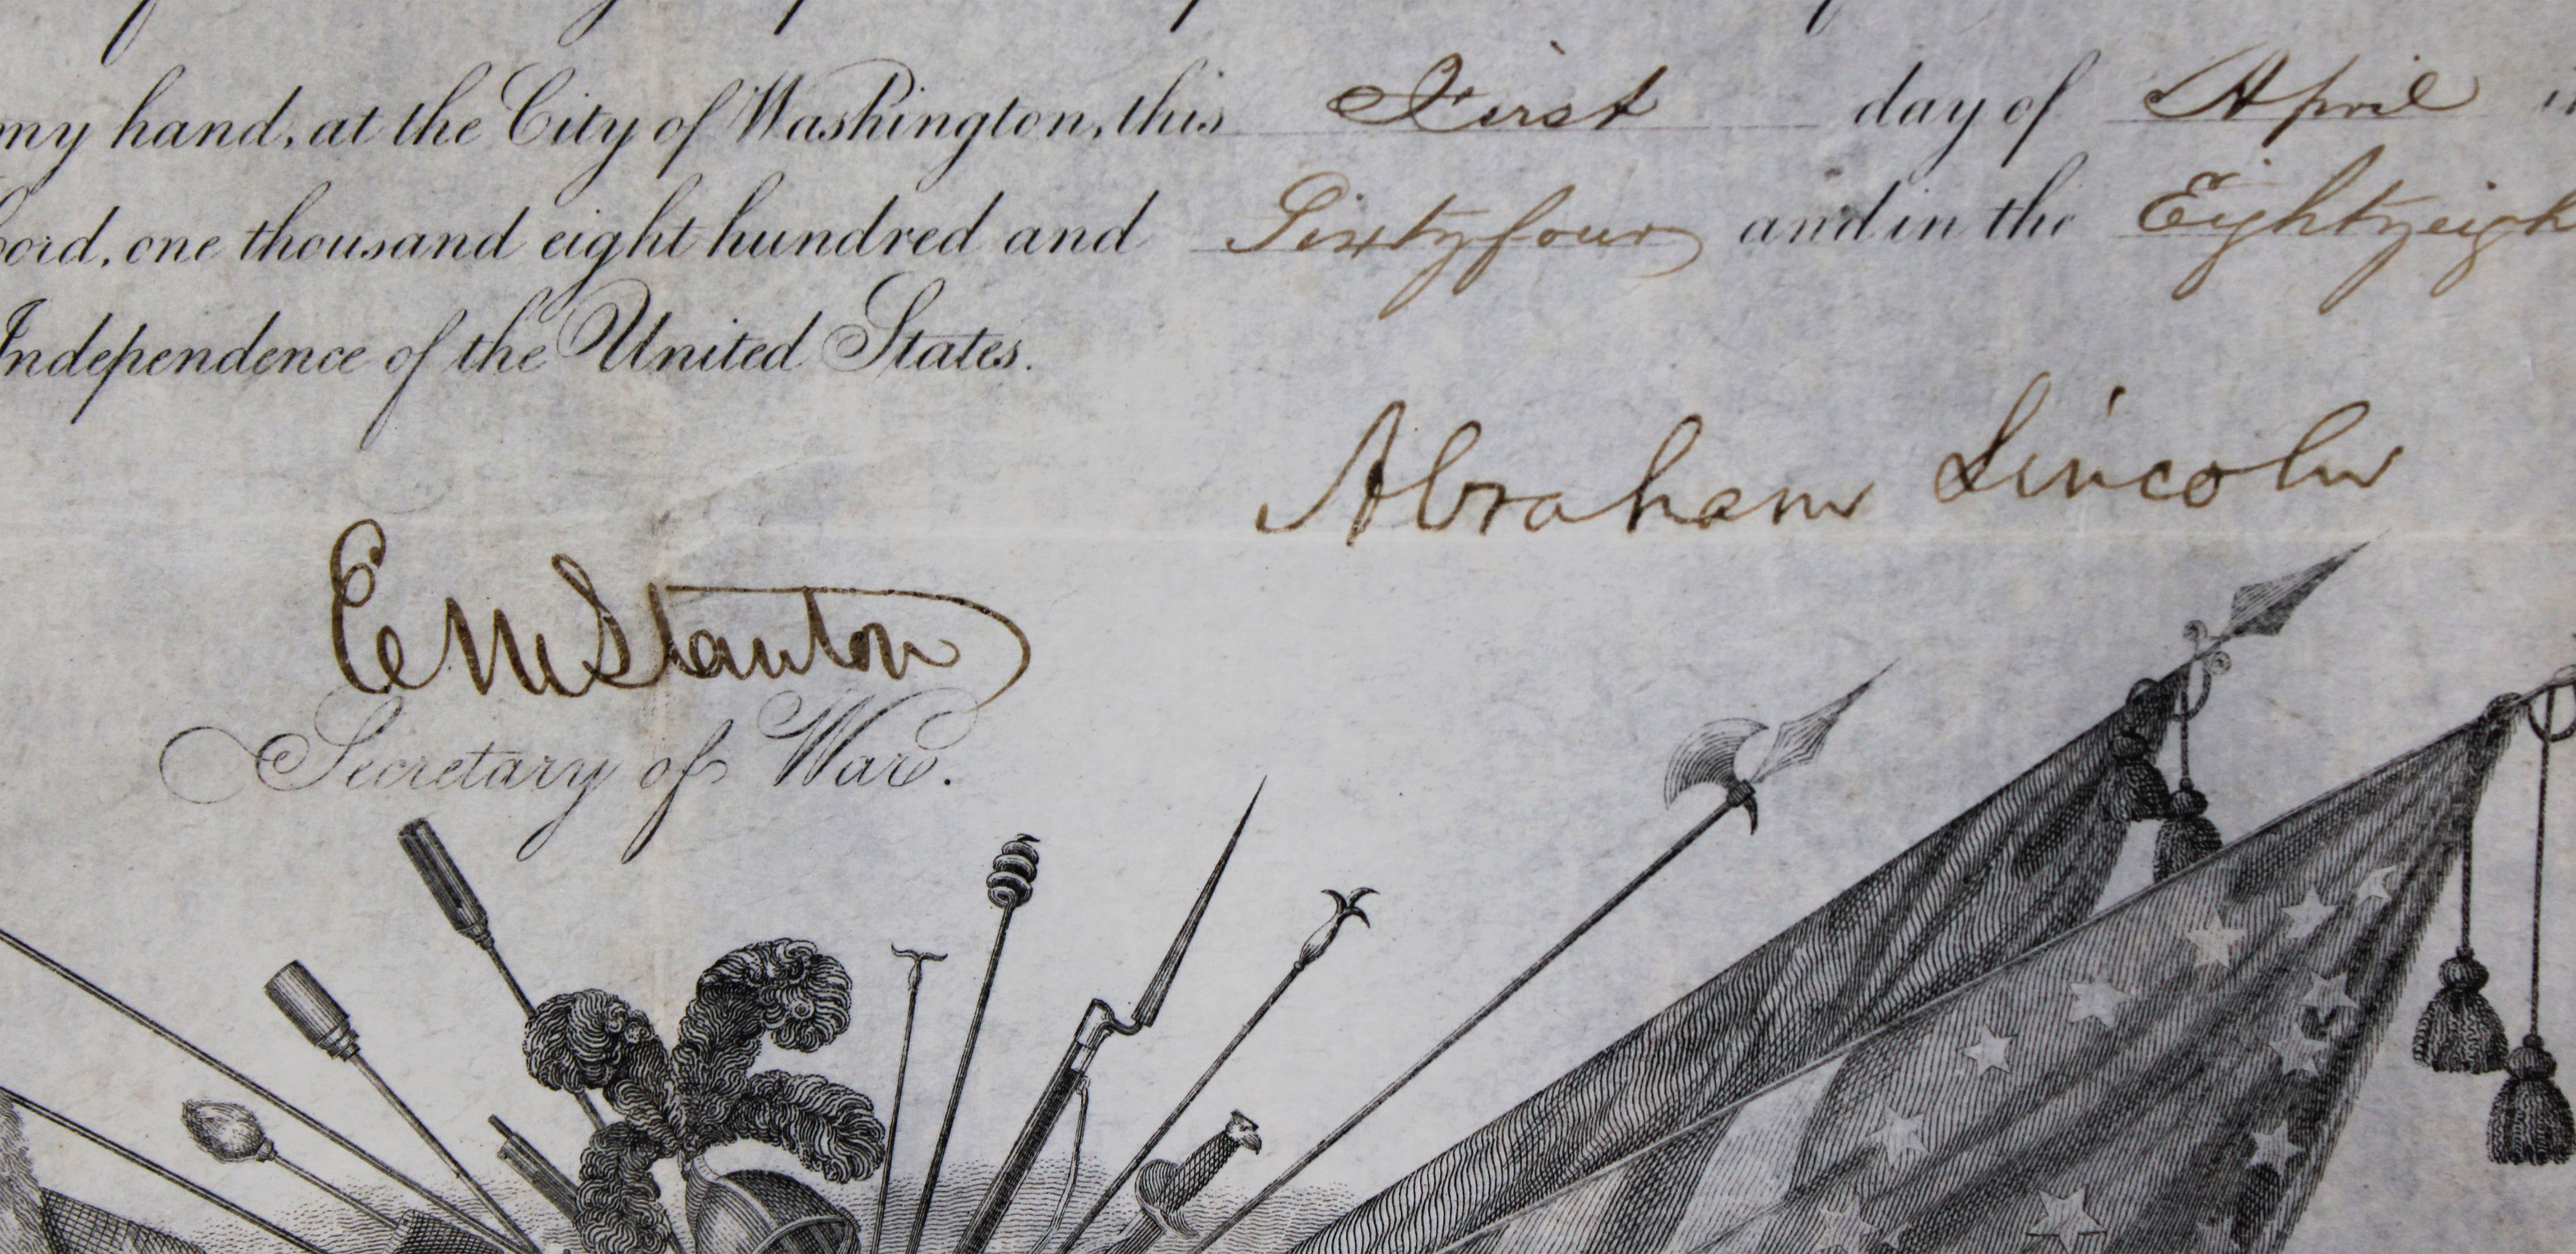 my hand, at the City of Washington, this First day of April
one thousand eight hundred and Sixtyfour and in the
Independence of the United States.
Abraham Lincoln
E M Stanton
Secretary of War.